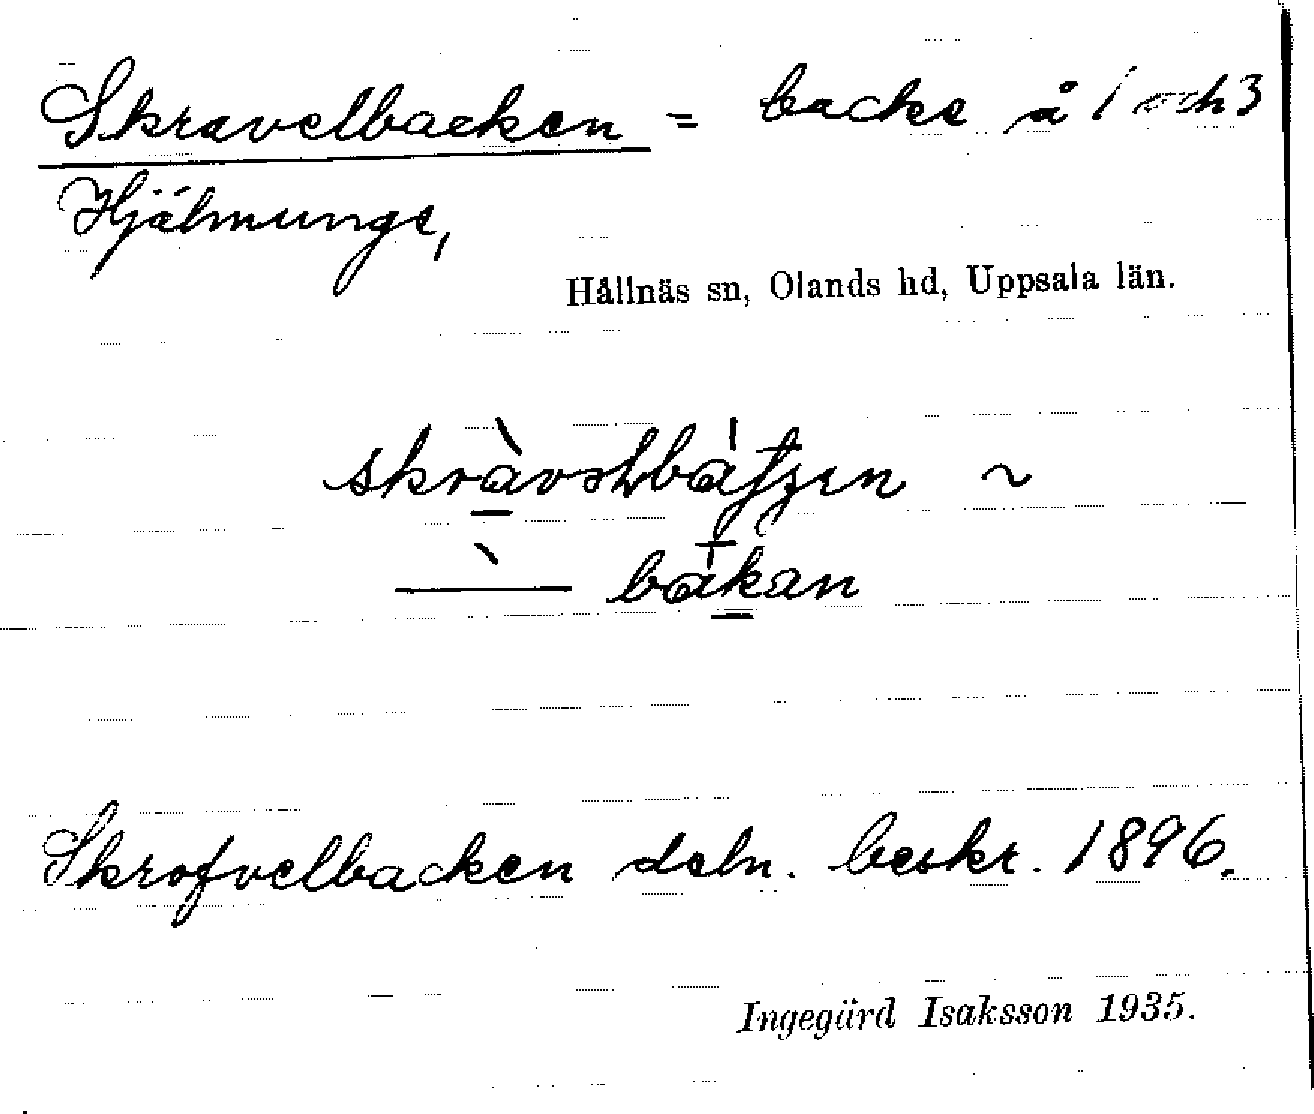 Skravelbacken = backe å 1 och 3
Hjälmunge,
Hållnäs sn, Olands hd, Uppsala län.
~
båkan
Skrofvelbacken deln. beskr. 1896.
Ingegärd Isaksson 1935.